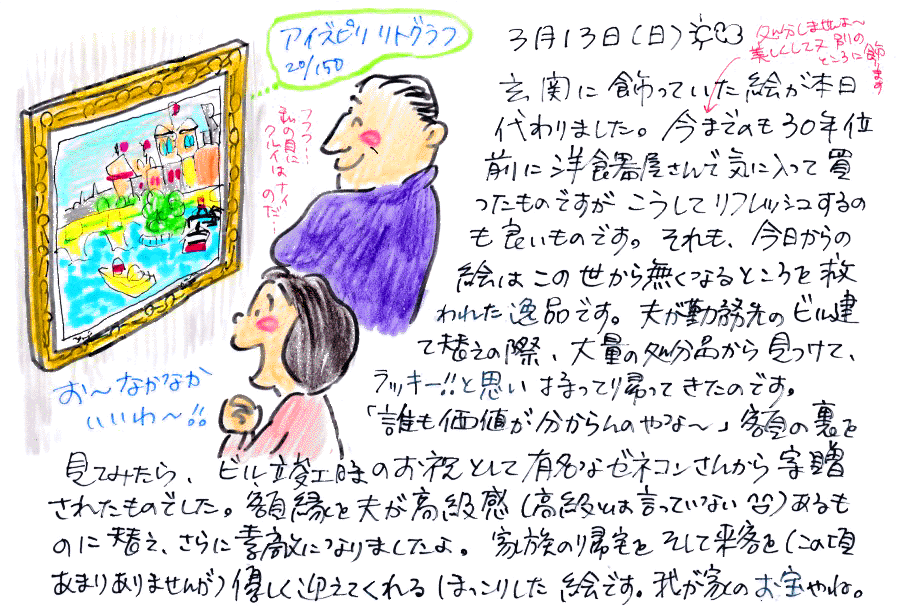 アイズピリ リトグラフ
20/150
3月13日(日)
処分しませんよ〜
美しくしてヌ 別の
ところに飾ります
フフフ…
私の目に
クルイはナイ
のだ…
お〜なかなか
いいわ〜!!
玄関に飾っていた絵が本日
代わりました。今までのも30年位
前に洋食器屋さんで気に入って買
ったものですが こうしてリフレッシュするの
も良いものです。それも、今日からの
絵はこの世から無くなるところを救
われた逸品です。夫が勤務先のビル建
て替えの際、大量の処分品から見つけて、
ラッキー!!と思い 持って帰ってきたのです。
「誰も価値が分からんのやな〜」額の裏を
見てみたら、ビル竣工時のお祝として有名なゼネコンさんから寄贈
されたものでした。額縁を夫が高級感(高級とは言っていない)あるも
のに替え、さらに素敵になりましたよ。家族の帰宅を そして来客を(この頃
あまりありませんが)優しく迎えてくれる ほっこりした 絵です。我が家のお宝やね。